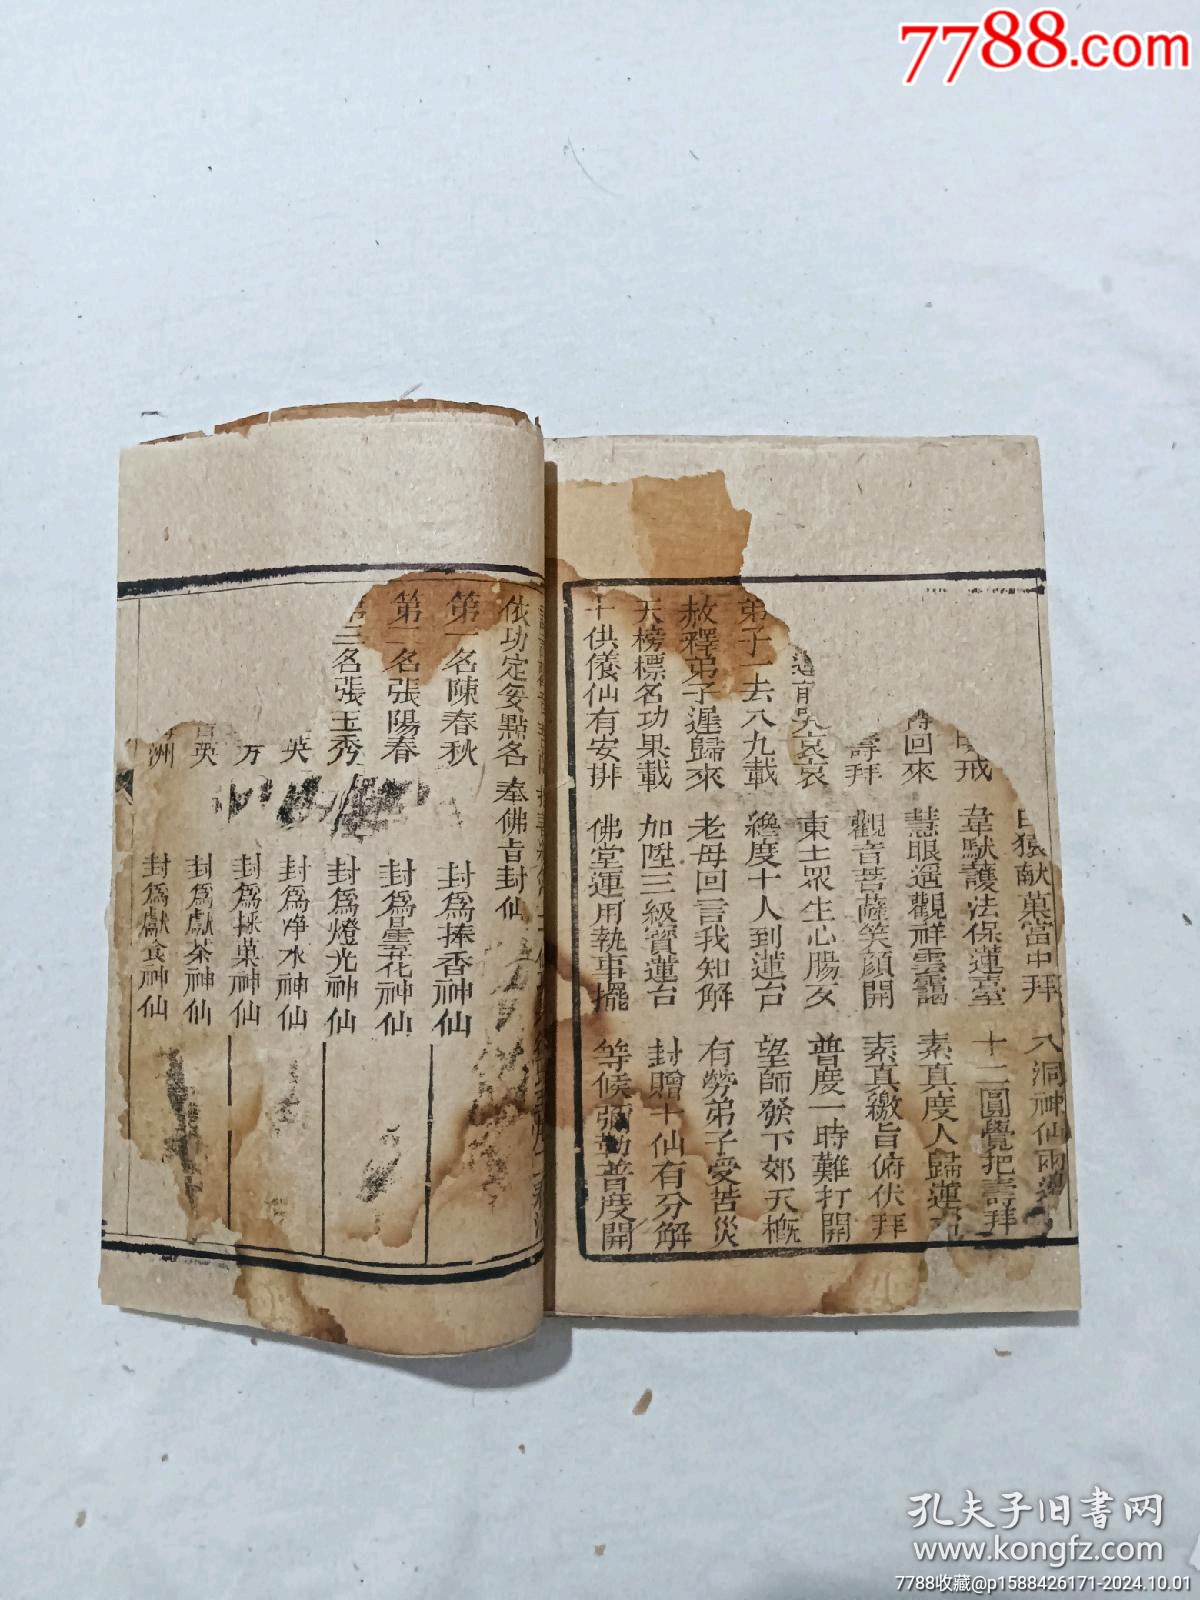 7788.com
白猿献菓當中拜 八洞神仙兩邊
戒 韋馱護法保蓮臺 十二圓覺把壽拜
回來 慧眼遥觀祥雲靄 素真度人歸蓮
壽拜 觀音菩薩笑顔開 素真繳旨俯伏拜
前哭哀哀 東土眾生心腸歹 普度一時難打開
弟子一去八九載 纔度十人到蓮台 望師發下郊天概
赦釋弟子遲歸來 老母回言我知解 有勞弟子受苦災
天榜標名功果載 加陞三級寳蓮台 封贈十仙有分解
十供儀仙有安排 佛堂運用執事擺 等候彌勒普度開
依功定妥點名 奉佛旨封仙
第一名陳春秋 封爲捧香神仙
第二名張陽春 封爲曇花神仙
第三名張玉秀 封爲燈光神仙
英 封爲净水神仙
方 封爲採菓神仙
英 封爲獻茶神仙
洲 封爲獻食神仙
孔夫子旧书网
www.kongfz.com
7788收藏@p1588426171-2024.10.01